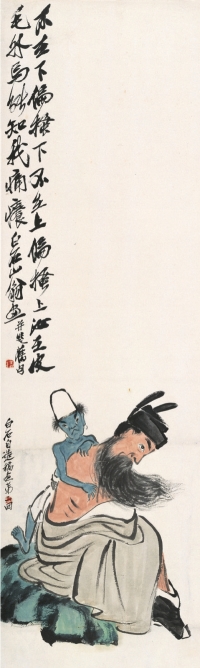 不在下偏搔下不在上偏搔上汝在皮
毛外焉能知我痛癢白石山翁畫并題舊句
白石自造稿也第回